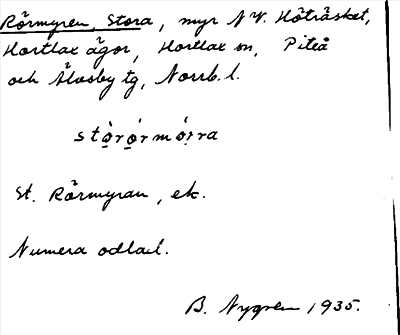 Rörmyren, Stora, myr N.V. Höträsket,
Hortlax ägor, Hortlax sn, Piteå
och Älvsby tg, Norrb. l.
St. Rörmyran, ek.
Numera odlad.
B. Nygren 1935.